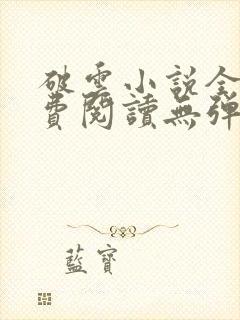 破雲小說全
費閱讀無彈
藍寶